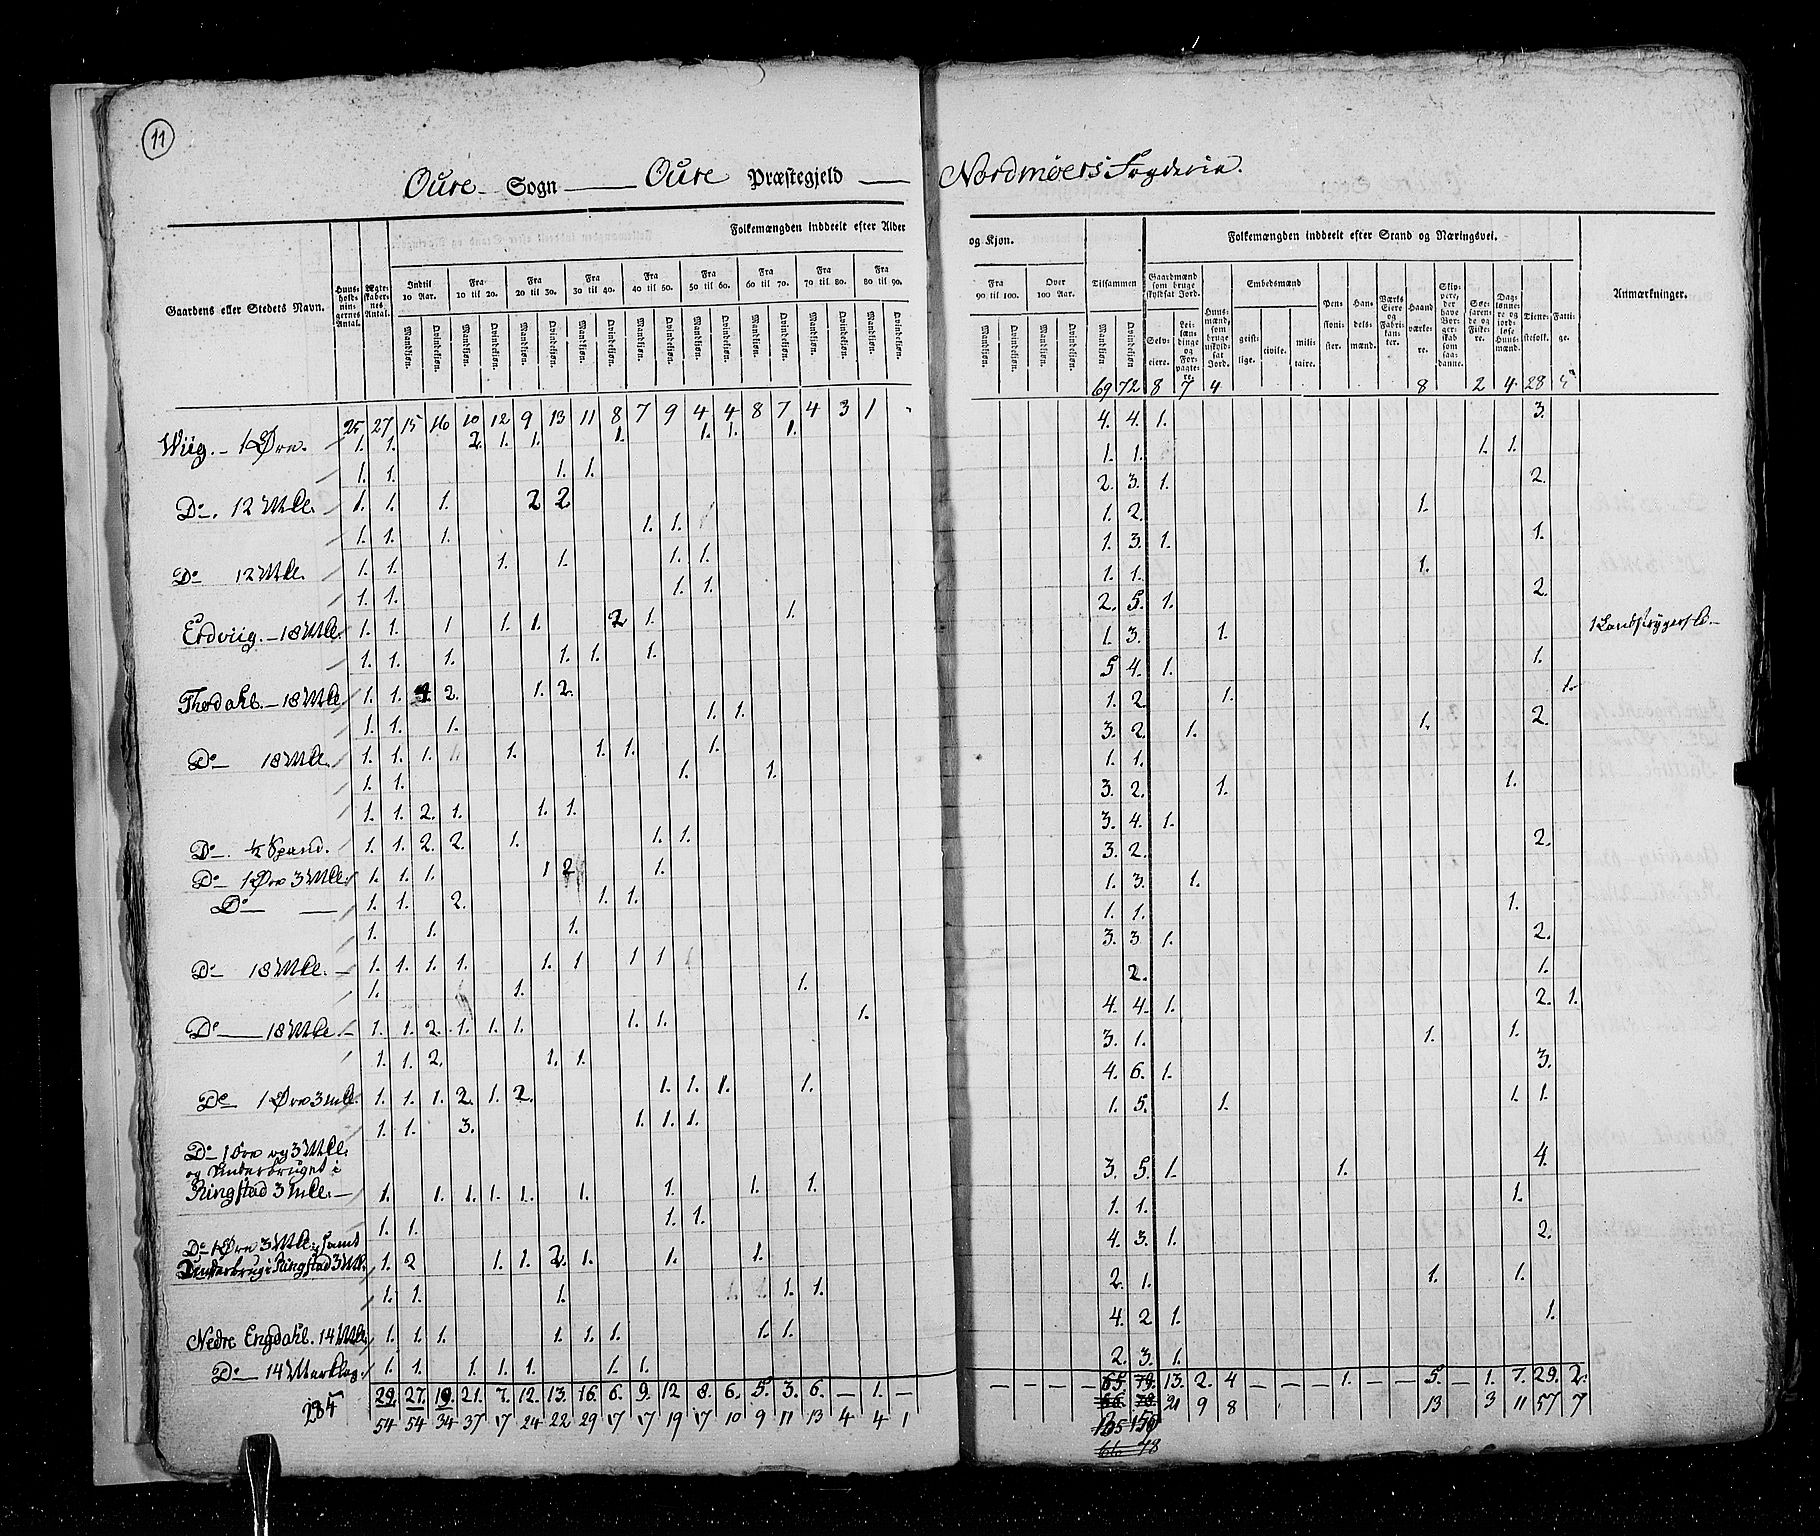 11
Oure Sogn — Oure Præstegjeld — Nordmøers Fogderie.
Gaardens eller Stedets Navn.
Huus-holdnin-gernes Antal.
Ægte-skaber-nes Antal.
Folkemængden inddeelt efter Alder og Kjøn.
Indtil 10 Aar.
Fra 10 til 20.
Fra 20 til 30.
Fra 30 til 40.
Fra 40 til 50.
Fra 50 til 60.
Fra 60 til 70.
Fra 70 til 80.
Fra 80 til 90.
Fra 90 til 100.
Over 100 Aar.
Tilsammen
Mandkjøn. Qvindekjøn.
Folkemængden inddeelt efter Stand og Næringsvei.
Gaardmænd som bruge skyldsat Jord.
Selv-eiere.
Lei-lændinge og For-pagtere.
Huus-mænd, som bruge uskyldsat Jord.
Embedsmænd
geist-lige.
civile.
mili-taire.
Pen-sioni-ster.
Han-dels-mænd.
Værks Eiere og Fabri-kan-ter.
Haand-værke-re.
Søe-farende og Fiske-re.
Dag-lønne-re og jord-løse Huus-mænd.
Tiene-stefolk.
Fatti-ge.
Anmærkninger.
25 27 15 16 10 12 9 13 11 8 7 9 4 4 8 7 4 3 1 69 72 8 7 4 8 2 4 28 5
Wiig. – 1 Øre. 1. 1. 2. 1. 1. 1. 1. 1. 1. 4. 4. 1. 3.
1. 1. 1. 1. 1. 1. 1. 1.
Do. 12 Mkl. 1. 1. 1. 2 2 2. 3. 1. 2.
1. 1. 1. 1. 1. 1. 2. 1.
Do 12 Mkl. 1. 1. 1. 1. 1. 1. 1. 3. 1. 1.
1. 1. 1. 1. 1. 1. 1.
Erdviig. – 18 Mkl. 1. 1. 1 1. 1. 2 1. 1. 2. 5. 1. 2.
1. 1. 1. 1. 1. 1. 1. 3. 1.
Thodahl. – 18 Mkl. 1. 1. 4 2. 1. 2. 5 4. 1. 1.
1. 1. 1. 1. 1. 1. 2 1. 1.
Do 18 Mkl. 1. 1. 1. 1. 1. 1. 1. 3. 2. 1. 1. 2.
1. 1. 1. 1. 1. 1.
1. 1. 2. 1. 1. 1. 3. 2. 1. 1.
Do. ½ Spand. 1. 1. 2. 2. 1. 1. 1. 3. 4. 1.
Do 1 Øre 3 Mkl. 1. 1. 1. 1 2 1. 3. 2. 2.
Do — 1. 1. 2. 1. 1. 1. 3. 1.
1. 1. 1. 1. 1. 1.
Do 18 Mkl. – 1. 1. 1. 1. 1. 1 1 1 3. 3 1. 2.
1. 1. 1. 2. 1.
Do 18 Mkl. – 1. 1. 2. 1. 1. 1. 1. 1. 1. 4. 4. 1. 2. 1.
1. 1. 2. 1. 1. 3. 1. 1. 1.
Do 1 Øre 3 Mkl. 1. 1. 1. 2. 1. 2. 1. 1. 1. 1. 4. 6. 1. 3.
1. 1. 3. 1. 1. 1. 1. 5. 1. 1. 1.
Do 1 Øre og 3 Mkl.
og Underbruget i
Ringstad 3 Mkl. – 1. 1. 1. 1. 1. 1. 1. 1. 1. 3. 5. 1. 1. 4.
1. 1. 1. 1. 1. 1. 1.
Do 1 Øre 3 Mkl. samt
Underbrug i Ringstad 3 Mk. 1. 2 1. 1. 2. 1. 1. 1. 4. 3. 1. 2.
1. 1. 1. 1. 1. 2. 1. 1. 1.
Nedre Engdahl. 14 Mk. 1. 1. 1. 1. 1. 1. 1. 1. 4. 2 1. 1.
Do 14 Marklag. 1. 1. 1. 1. 1. 1. 1. 2. 3. 1.
29. 27. 19. 21. 7. 12. 13. 16. 6. 9. 12 8. 6. 5. 3. 6. – 1. – – – – – 65. 79. 13. 2. 4 – – – 1. – – 5. – 1. 7. 29. 2.
54 54 34 37 17 24 22 29 17 17 19 17 10 9 11 13 4 4 1 21 9 8 13 3 11 57 7